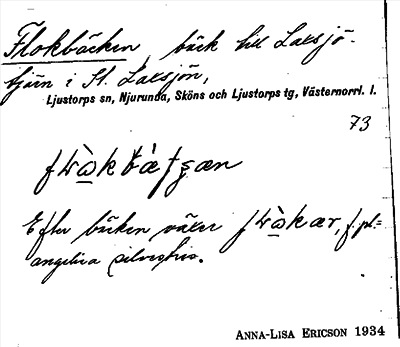 Flokbäcken, bäck till Laksjö-
tjärn i St. Laksjön,
Ljustorps sn, Njurunda, Sköns och Ljustorps tg, Västernorrl. l.
73
Efter bäcken växer
angelica silvestris.
ANNA-LISA ERICSON 1934